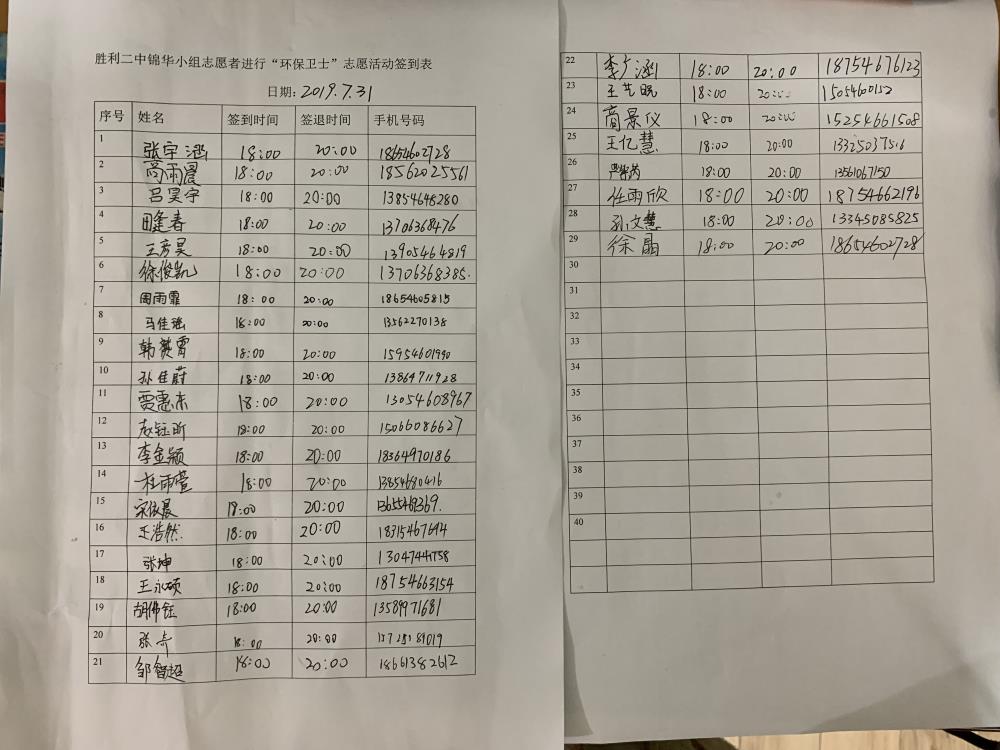 胜利二中锦华小组志愿者进行“环保卫士”志愿活动签到表
日期：2019.7.31
序号 姓名 签到时间 签退时间 手机号码
1 张宇涵 18:00 20:00 18654602728
2 尚雨晨 18:00 20:00 18562025561
3 吕昊宇 18:00 20:00 13854648280
4 田逢春 18:00 20:00 13706368476
5 王彦昊 18:00 20:00 13905464819
6 徐俊凯 18:00 20:00 13706368385.
7 周雨霏 18:00 20:00 18654605815
8 马佳瑶 18:00 20:00 13562270138
9 韩赟霄 18:00 20:00 15954601990
10 孙佳蔚 18:00 20:00 13864711928
11 贾惠末 18:00 20:00 13054608967
12 赵钰昕 18:00 20:00 15066086627
13 李金颖 18:00 20:00 18364970186
14 杜雨萱 18:00 20:00 13854680416
15 宋依晨 18:00 20:00
16 王浩然. 18:00 20:00 18315467644
17 张坤 18:00 20:00
18 王永硕 18:00 20:00 18754663154
19 胡伟钰 18:00 20:00 13589971681
20 张奇 18:00 20:00
21 邹智超 18:00 20:00 18661382612
22 李广涵 18:00 20:00 18754676123
23 王艺晓 18:00 20:00 15054600152
24 商景仪 18:00 20:00 15254661508
25 王亿慧 18:00 20:00 13325037516
26 18:00 20:00 13561067150
27 任雨欣 18:00 20:00 18754662196
28 孙文慧 18:00 20:00 13345085825
29 徐晶 18:00 20:00 18654602728
30
31
32
33
34
35
36
37
38
39
40